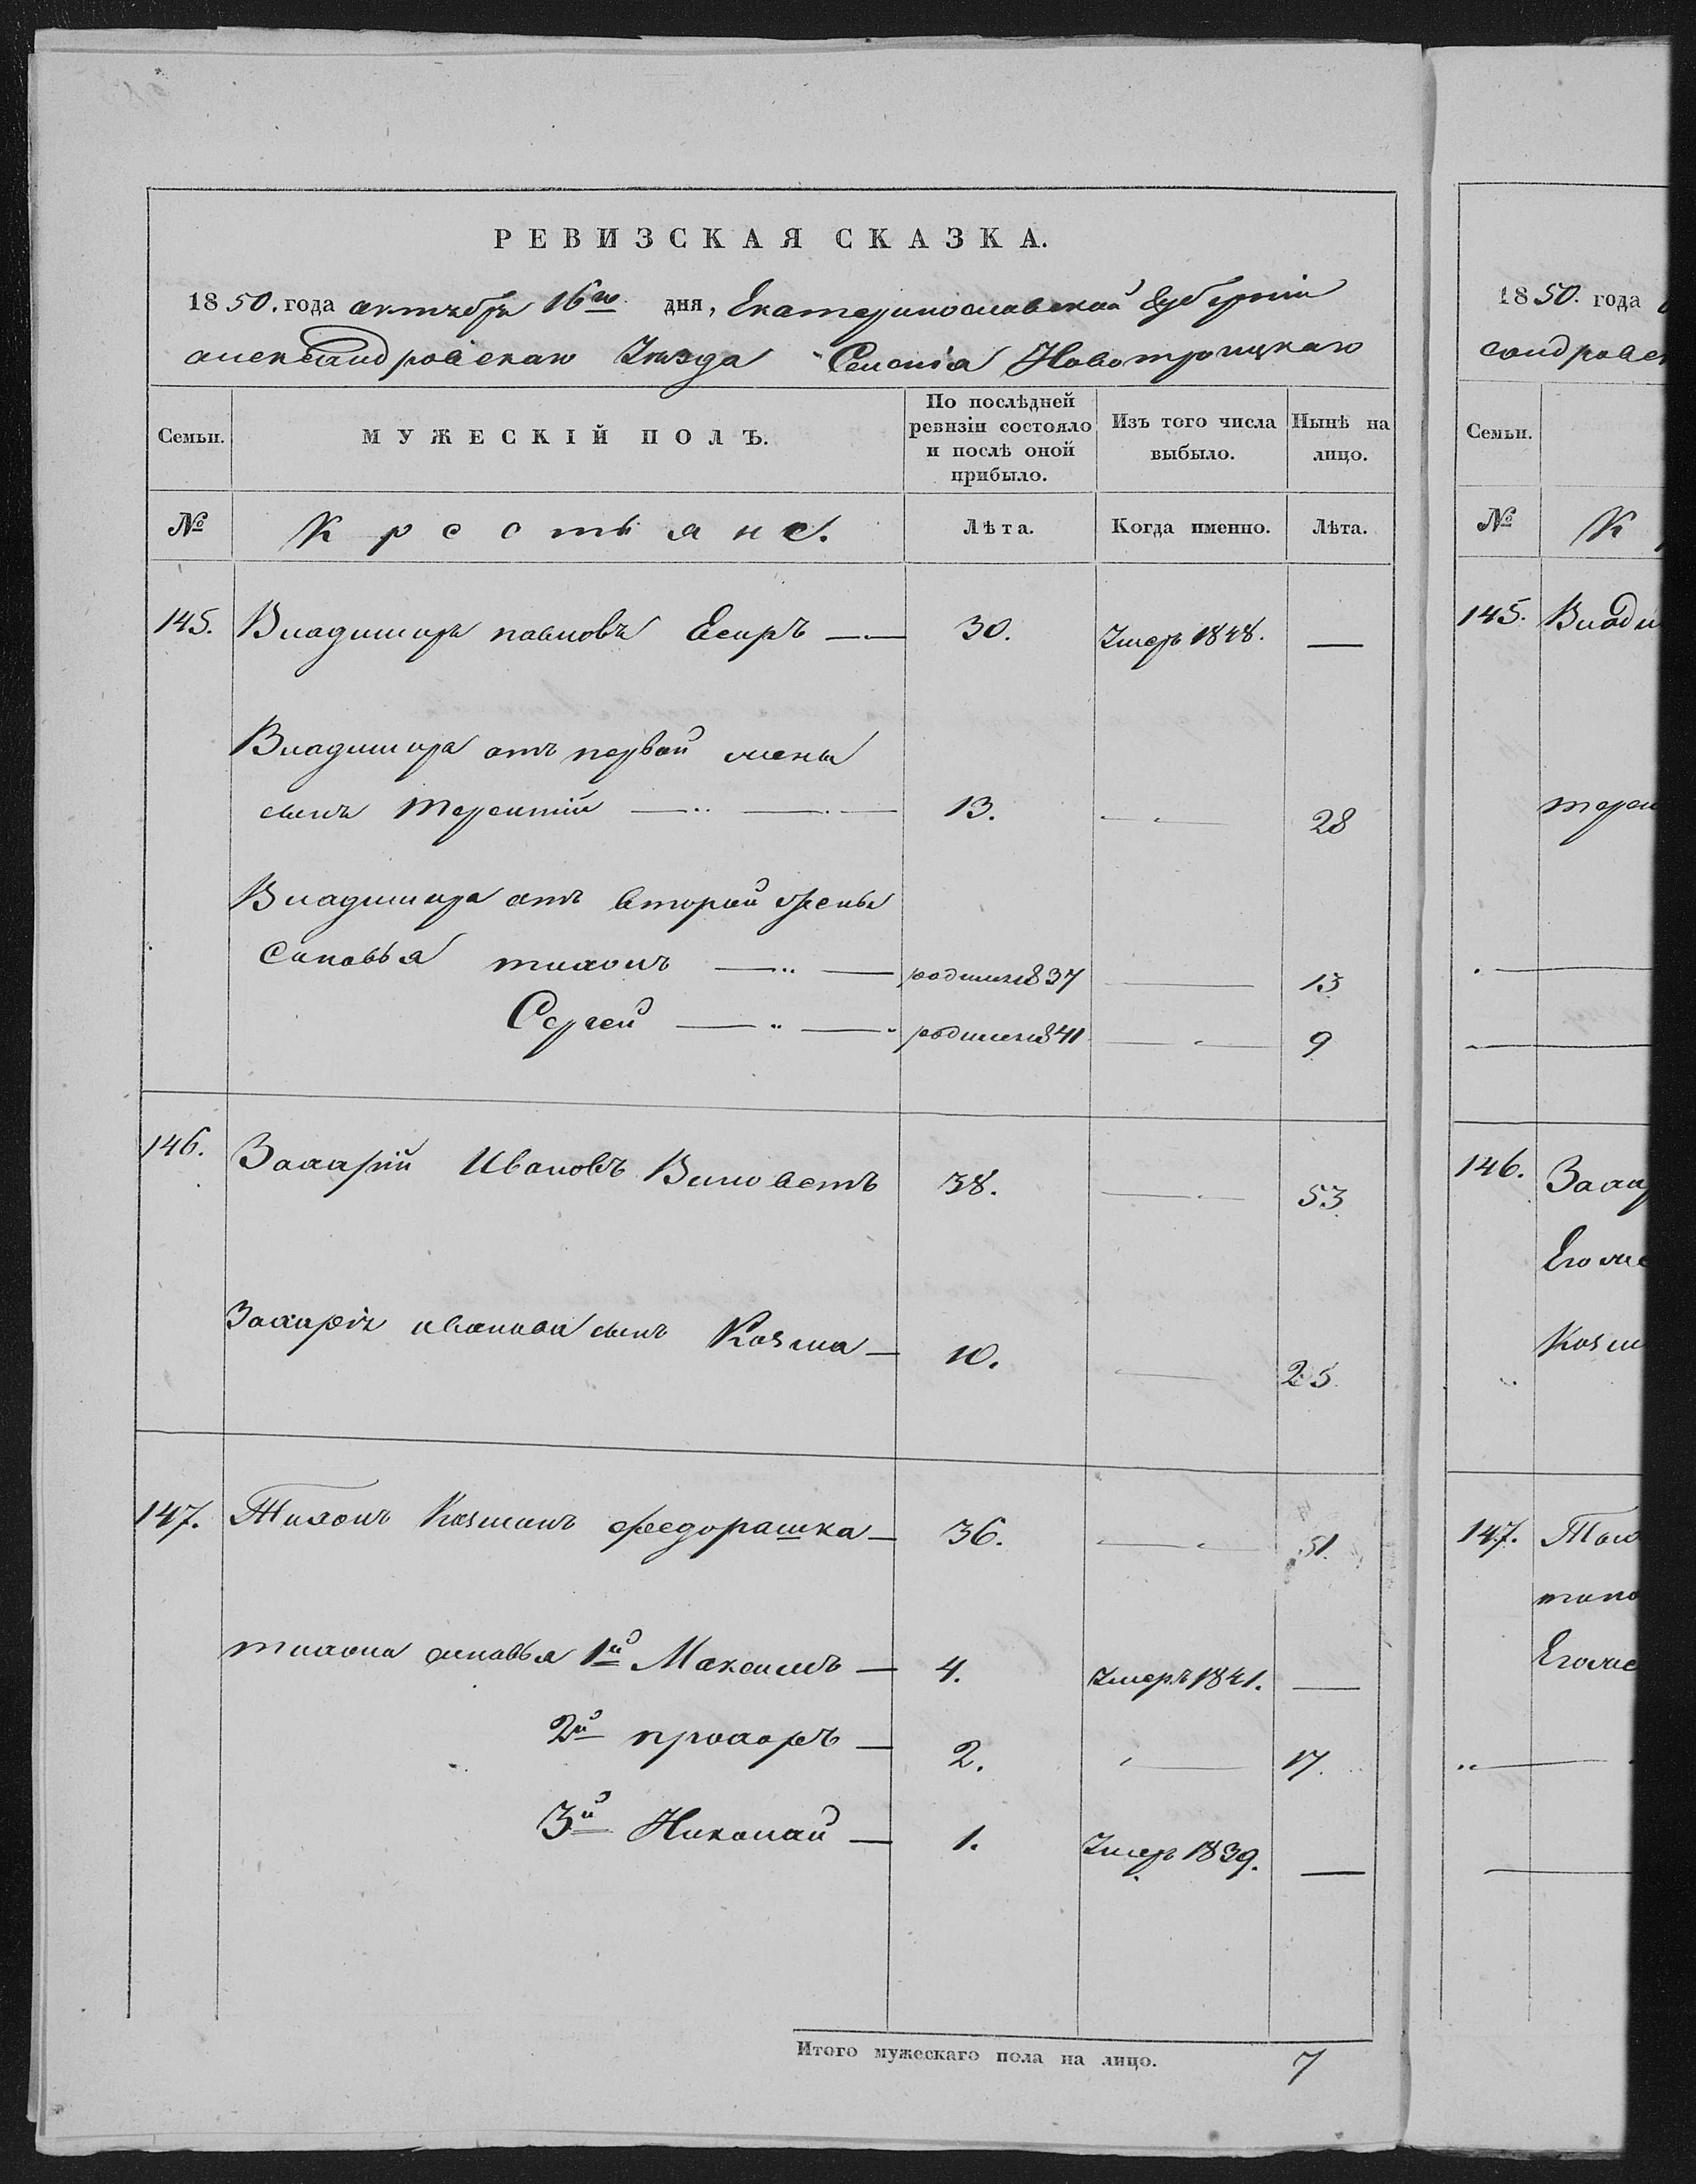 РЕВИЗСКАЯ СКАЗКА.
1850. года октября 16го дня, Екатеринославской Губернии
александровскаго Уезда Селенiя Новотроицкаго
Семьи. МУЖЕСКІЙ ПОЛЪ. По послѣдней ревизіи состояло и послѣ оной прибыло. Изъ того числа выбыло. Нынѣ на лицо.
№ Крестьяне. Лѣта. Когда именно. Лѣта.
145. Владимиръ павловъ 30. Умеръ 1848. —
Владимира отъ первой жены
сынъ Терентiй — 13. — 28
Владимира отъ второй жены
Сыновья тихонъ — родился 1837 — 13
Сергей — родился 1841 — 9
146. Захарiй Ивановъ 38. — 53
Захарiя иванова сынъ Козма — 10. — 25
147. Тихонъ Козминъ федорашка — 36. — 51.
тихона сыновья 1й Максимъ — 4. Умеръ 1841. —
2й прохоръ — 2. — 17.
3й Николай — 1. Умеръ 1839. —
Итого мужескаго пола на лицо. 7
1850. года
сандровск
Семьи.
№ К
145. Влади
терен
146. Захар
Его же
Козм
147. Тихо
тихо
Его же